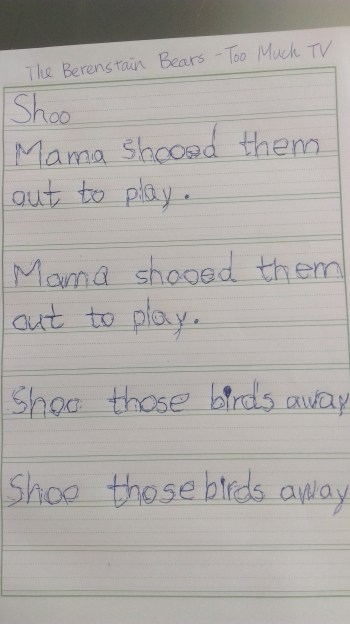 The Berenstain Bears - Too Much TV
Shoo
Mama shooed them
out to play.
Mama shooed them
out to play.
Shoo those birds away
Shoo those birds away